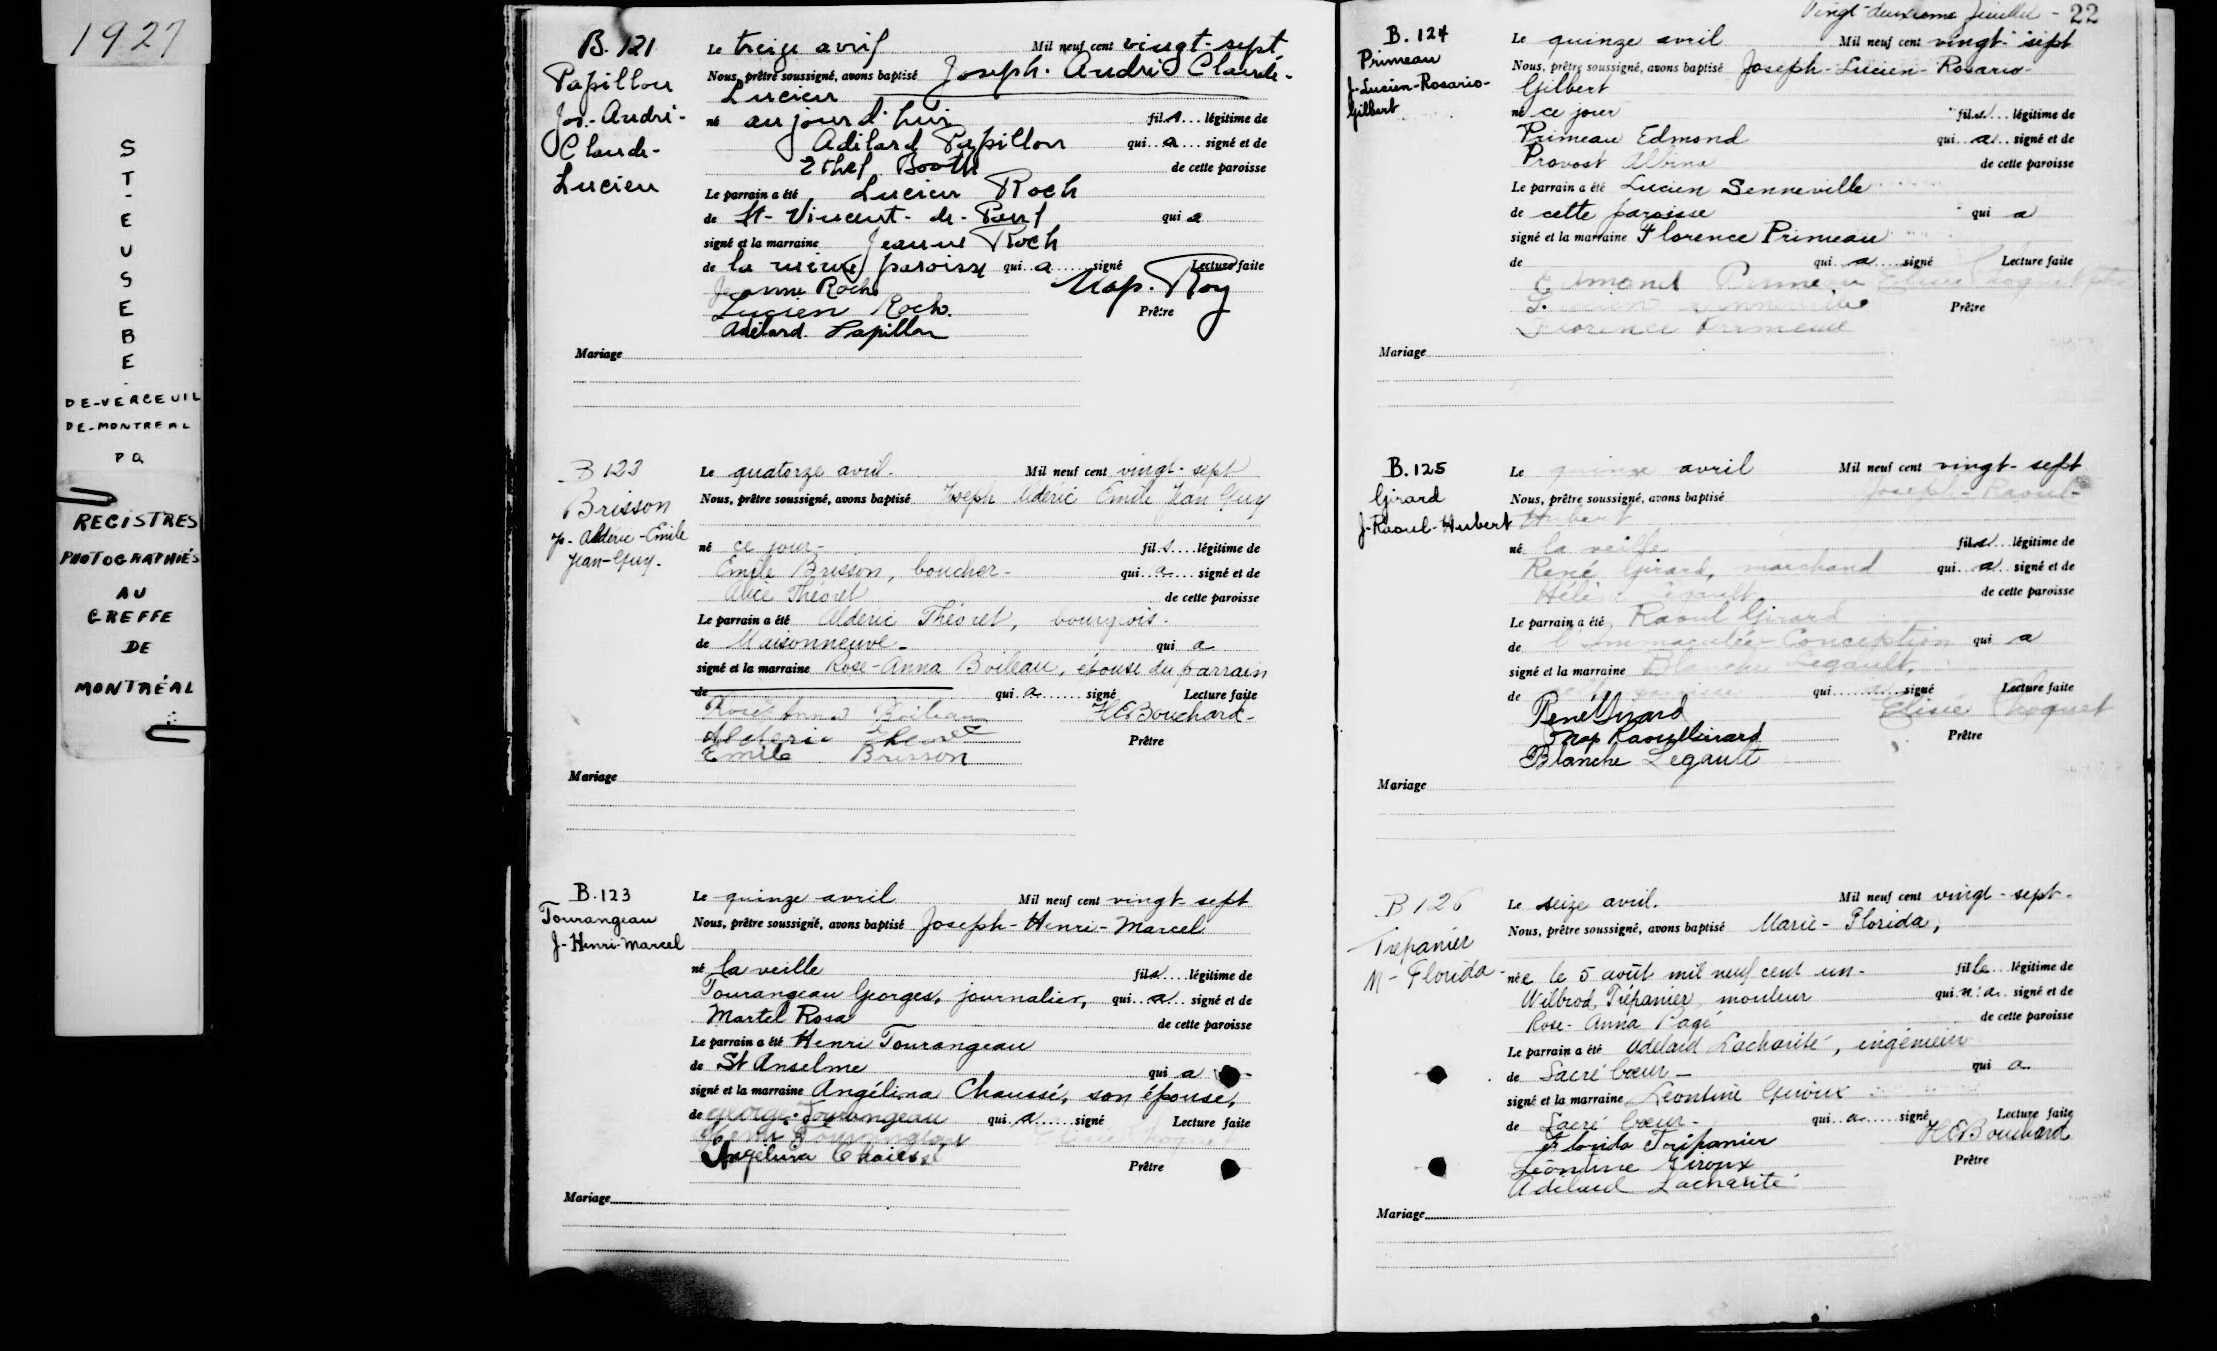 1927
ST-EUSEBE
DE-VERCEUIL
DE-MONTREAL
PQ
REGISTRES
PHOTOGRAPHIÉS
AU
GREFFE
DE
MONTRÉAL
B. 121
Papillon
Jos.-André-
Claude-
Lucien
Le treize avril Mil neuf cent vingt-sept
Nous, prêtre soussigné, avons baptisé Joseph. André Claude-
Lucien
né aujourd'hui fils légitime de
Adélard Papillon qui a signé et de
Ethel Booth de cette paroisse
Le parrain a été Lucien Roch
de St-Vincent-de-Paul qui a
signé et la marraine Jeanne Roch
de la même paroisse qui a signé Lecture faite
Jeanne Roch Nap. Roy
Lucien Roch. Prêtre
Adélard Papillon
Mariage
B 123
Brisson
J-Aldéric-Emile
Jean-Guy.
Le quatorze avril. Mil neuf cent vingt-sept
Nous, prêtre soussigné, avons baptisé Joseph Aldéric Emile Jean Guy
né ce jour- fils légitime de
Emile Brisson, boucher- qui a signé et de
Alice Théoret de cette paroisse
Le parrain a été Alderic Théoret, bourgeois.
de Maisonneuve- qui a
signé et la marraine Rose-Anna Boileau, épouse du parrain
de qui a signé Lecture faite
Rose Anna Boileau HCBouchard-
Alderic Théoret Prêtre
Emile Brisson
Mariage
B.123
Tourangeau
J-Henri-Marcel
Le quinze avril Mil neuf cent vingt-sept
Nous, prêtre soussigné, avons baptisé Joseph-Henri-Marcel
né la veille fils légitime de
Tourangeau Georges, journalier, qui a signé et de
Martel Rosa de cette paroisse
Le parrain a été Henri Tourangeau
de St Anselme qui a
signé et la marraine Angélina Chaussé, son épouse,
de George Tourangeau qui a signé Lecture faite
Henri Tourangeau
Angelina Chaussé Prêtre
Mariage
Vingt-deuxième feuillet - 22
B. 124
Primeau
J-Lucien-Rosario-
Gilbert
Le quinze avril Mil neuf cent vingt-sept
Nous, prêtre soussigné, avons baptisé Joseph-Lucien-Rosario-
Gilbert
né ce jour fils légitime de
Primeau Edmond qui a signé et de
Provost Albina de cette paroisse
Le parrain a été Lucien Senneville
de cette paroisse qui a
signé et la marraine Florence Primeau
de qui a signé Lecture faite
Edmond Primeau
Lucien Senneville Prêtre
Florence Primeau
Mariage
B.125
Girard
J-Raoul-Hubert
Le quinze avril Mil neuf cent vingt-sept
Nous, prêtre soussigné, avons baptisé Joseph-Raoul-
Hubert
né la veille fils légitime de
René Girard, marchand qui a signé et de
Hélène Legault de cette paroisse
Le parrain a été Raoul Girard
de l'Immaculée-Conception qui a
signé et la marraine Blanche Legault,
de qui a signé Lecture faite
René Girard Elisée Choquet
Raoul Girard Prêtre
Blanche Legault
Mariage
B 126
Trépanier
M-Florida-
Le seize avril. Mil neuf cent vingt-sept-
Nous, prêtre soussigné, avons baptisé Marie-Florida,
née le 5 août mil neuf cent un- fille légitime de
Wilbrod Trépanier, mouleur qui n'a signé et de
Rose-Anna Pagé de cette paroisse
Le parrain a été Adelard Lacharité, ingénieur
de Sacré Cœur- qui a
signé et la marraine Léontine Giroux
de Sacré Cœur- qui a signé Lecture faite
Florida Trépanier HCBouchard
Léontine Giroux Prêtre
Adélard Lacharité
Mariage